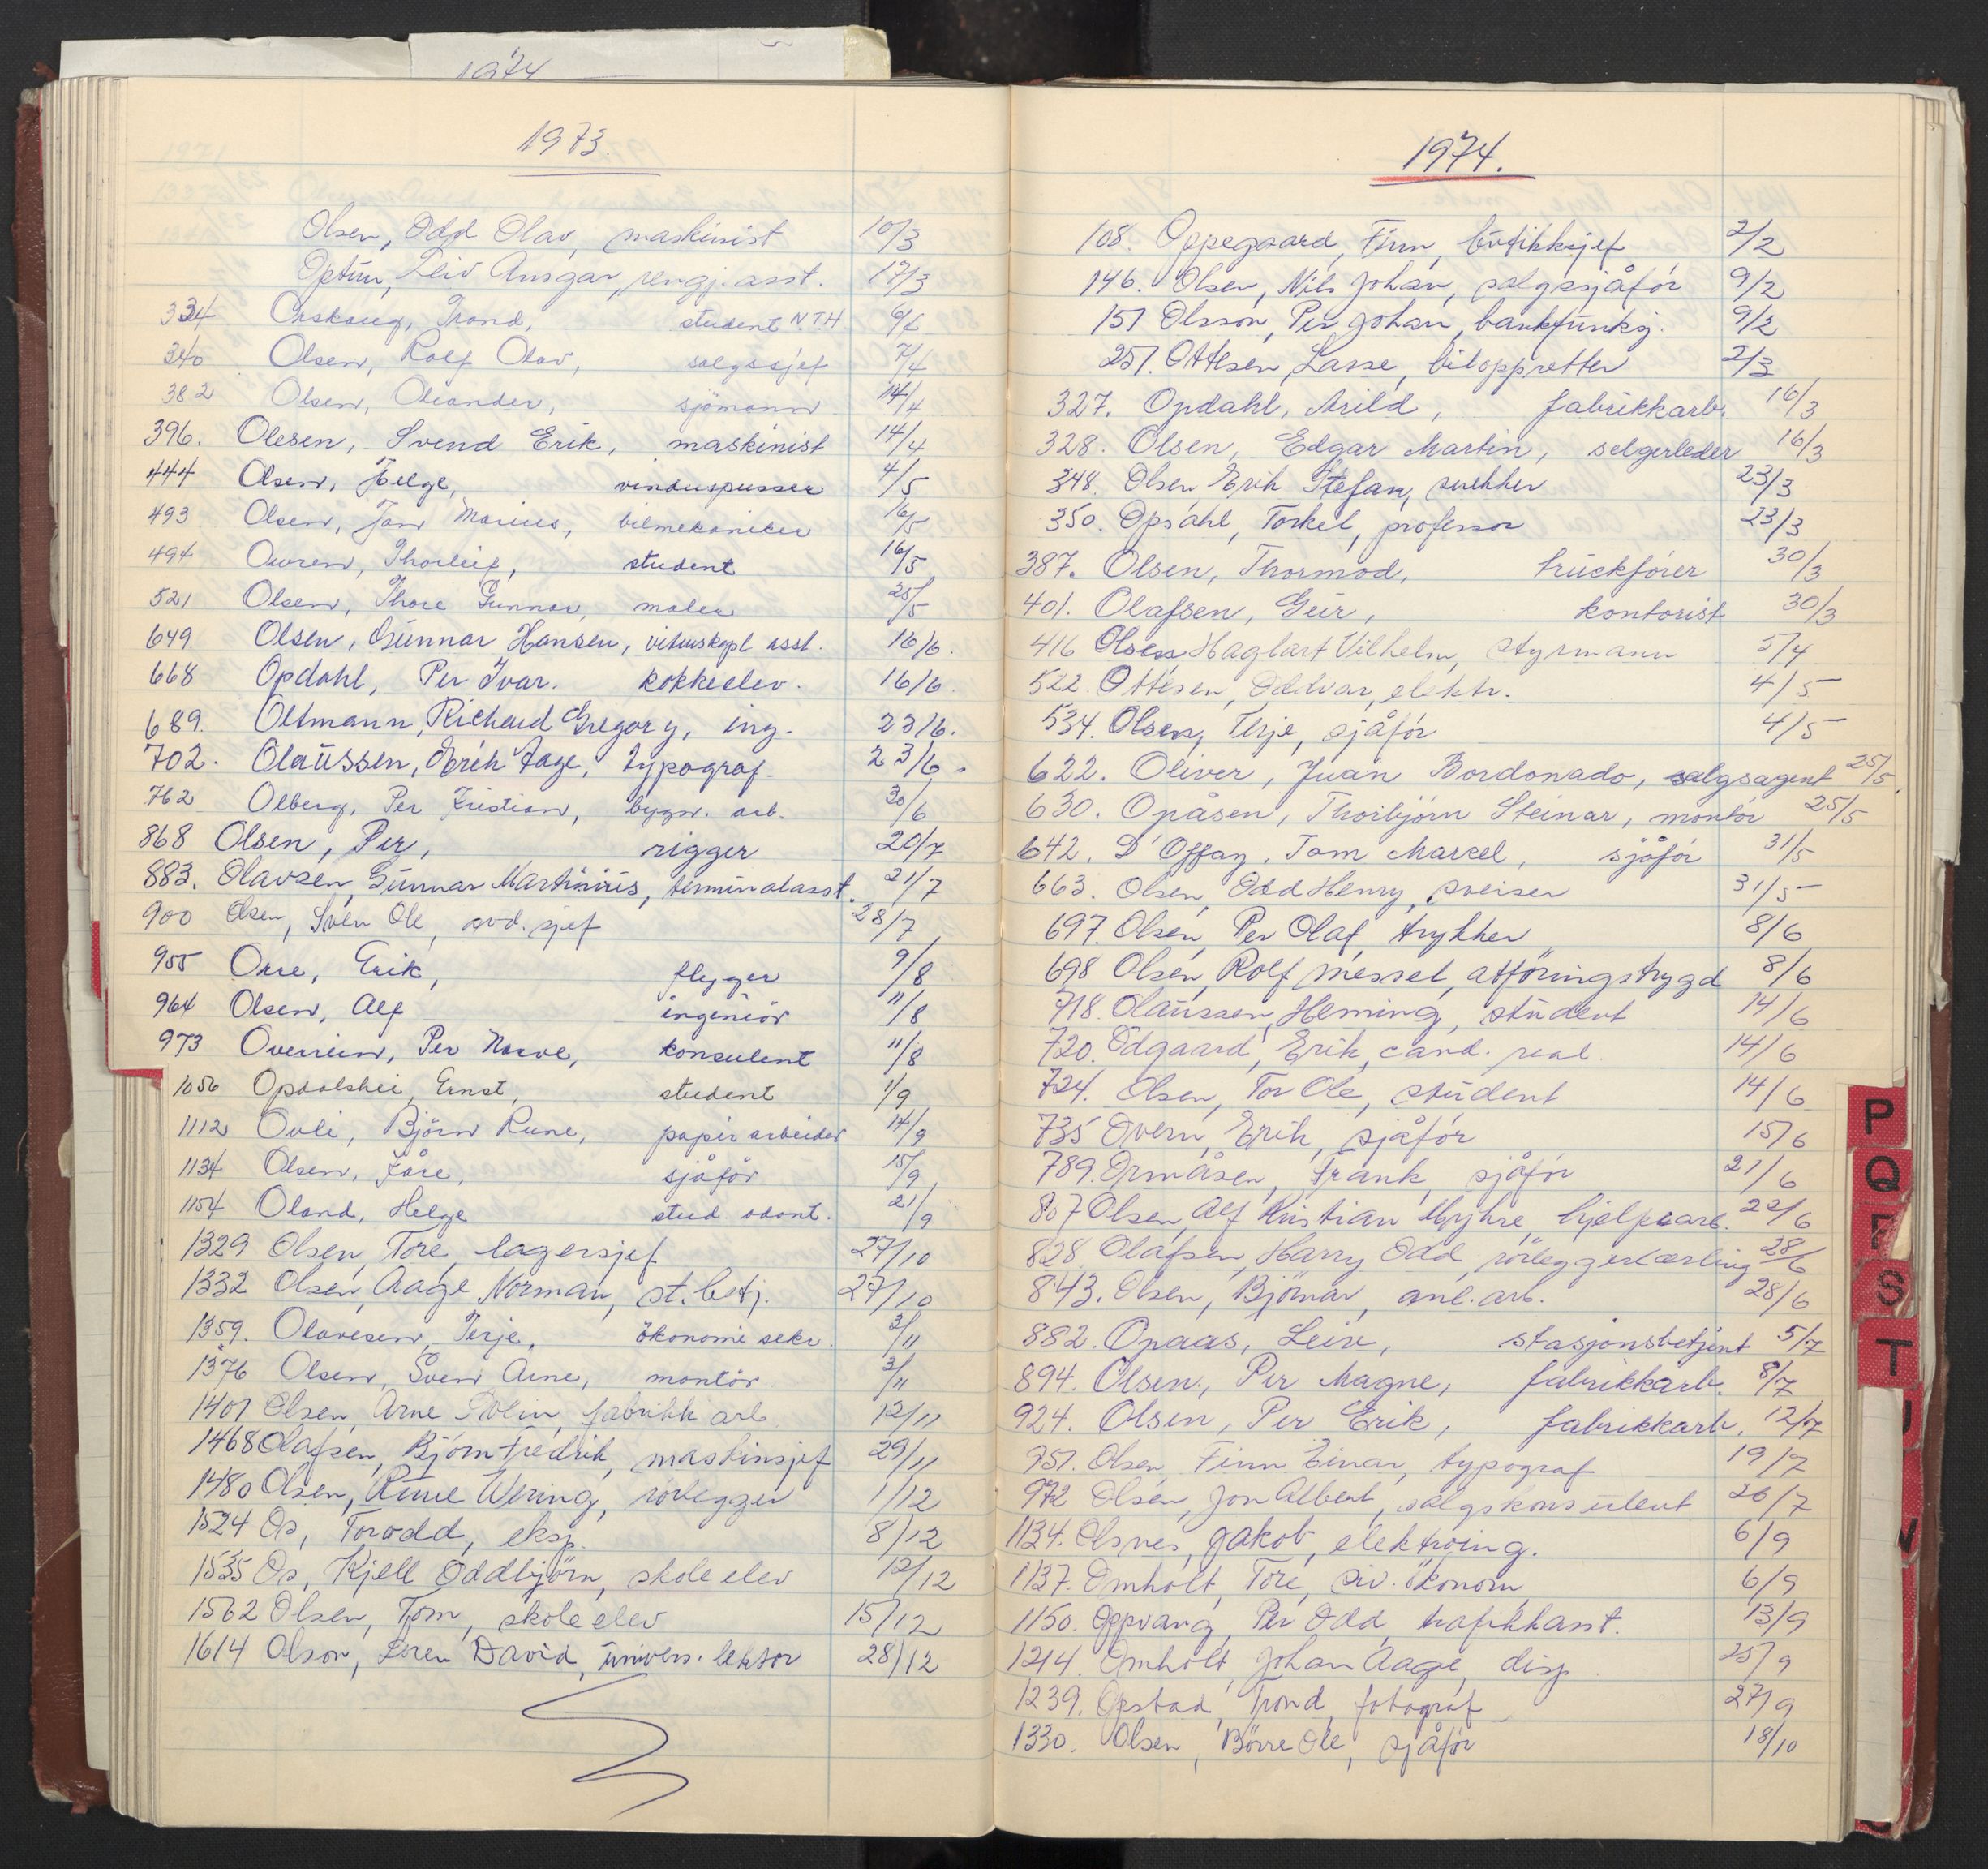 1974
1973.
Olsen, Odd Olav, maskinist 10/3
Optun, Leiv Ansgar, rengj. asst. 17/3
334 Orskaug, Trond, student N.T.H 9/4
340 Olsen, Rolf Olav, salgssjef 7/4
382 Olsen, Oleander, sjömann 14/4
396. Olesen, Svend Erik, maskinist 14/4
444 Olsen, Helge, vinduspusser 4/5
493 Olsen, Jan Marius, bilmekaniker 16/5
494 Ouren, Thorleif, student 16/5
521 Olsen, Thore Gunnar, maler 25/5
649. Olsen, Gunnar Hansen, asst. 16/6.
668 Opdahl, Per Ivar. kokkeelev. 16/6.
689. Oltmann, Richard Gregory, ing. 23/6.
702. Olaussen, Erik Aage, typograf. 23/6.
762 Olberg, Per Kristian, bygn. arb. 30/6
868 Olsen, Per, rigger 20/7
883. Olavsen, Gunnar Martinius, terminalasst. 21/7
900 Olsen, Sven Ole, avd. sjef 28/7
955 Orre, Erik, flyger 9/8
964 Olsen, Alf ingeniör 11/8
973 Overrein, Per Norve, konsulent 11/8
1056 Opdalshei, Ernst, student 1/9
1112 Ovli, Björn Rune, papirarbeider 14/9
1134 Olsen, Kåre, sjåför 15/9
1154 Oland, Helge stud odont. 21/9
1329 Olsen, Tore, lagersjef 27/10
1332 Olsen, Aage Norman, st. betj. 27/10
1359. Olavesen, Terje, ökonomi sekr. 3/11
1376 Olsen, Svein Arne, montör 3/11
1401 Olsen, Arne fabrikk arb. 12/11
1468 Olafsen, Björn Fredrik, maskinsjef 29/11
1480 Olsen, Rune Wering, rörlegger 1/12
1524 Os, Torodd, eksp. 8/12
1535 Os, Kjell Oddbjörn, skoleelev 12/12
1562 Olsen, Tom, skoleelev 15/12
1614 Olson, Loren David, univers. lektor 28/12
1974.
108. Oppegaard, Finn, butikksjef 2/2
146. Olsen, Nils Johan, salgssjåför 9/2
151 Olsson, Per Johan, bankfunksj. 9/2
251. Ottesen, Lasse, biloppretter 2/3
327. Opdahl, Arild, fabrikkarb. 16/3
328. Olsen, Edgar Martin, selgerleder 16/3
348. Olsen Erik Stefan, snekker 23/3
350. Opsahl, Torkel, professor 23/3
387. Olsen, Thormod, truckförer 30/3
401. Olafsen, Geir, kontorist 30/3
416 Olsen Hagbart Vilhelm, styrmann 5/4
522. Ottesen, Oddvar, elektr. 4/5
534. Olsen, Terje, sjåför 4/5
622. Oliver, Juan Bordonado, salgsagent 25/5.
630. Opåsen, Thorbjörn Steinar, montör 25/5
642. D'Offay, Tom Marcel, sjåför 31/5
663. Olsen, Odd Henry, sveiser 31/5
697. Olsen, Per Olaf, trykker 8/6
698 Olsen, Rolf Messel, attföringstrygd 8/6
718. Olaussen, Heming, student 14/6
720. Odgaard, Erik, cand. real. 14/6
724. Olsen, Tor Ole, student 14/6
735 Overn, Erik, sjåför 15/6
789. Ormåsen, Frank, sjåför 21/6
807 Olsen, Alf Kristian Myhre, hjelpearb. 22/6
828. Olafsen, Harry Odd, rörleggerlærling 28/6
843. Olsen, Björnar, anl. arb. 28/6
882. Opaas, Leiv, stasjonsbetjent 5/7
894. Olsen, Per Magne, fabrikkarb. 8/7
924. Olsen, Per Erik, fabrikkarb. 12/7
951. Olsen, Finn Einar, typograf 19/7
972 Olsen, Jon Albert, salgskonsulent 26/7
1134. Olsnes, Jakob, elektroing. 6/9
1137. Omholt, Tore, siv. ökonom 6/9
1150. Oppvang, Per Odd, trafikkasst. 13/9
1214. Omholt, Johan Aage, disp. 25/9
1239. Opstad, Trond, fotograf 27/9
1330. Olsen, Börre Ole, sjåför 18/10
P
Q
S
T